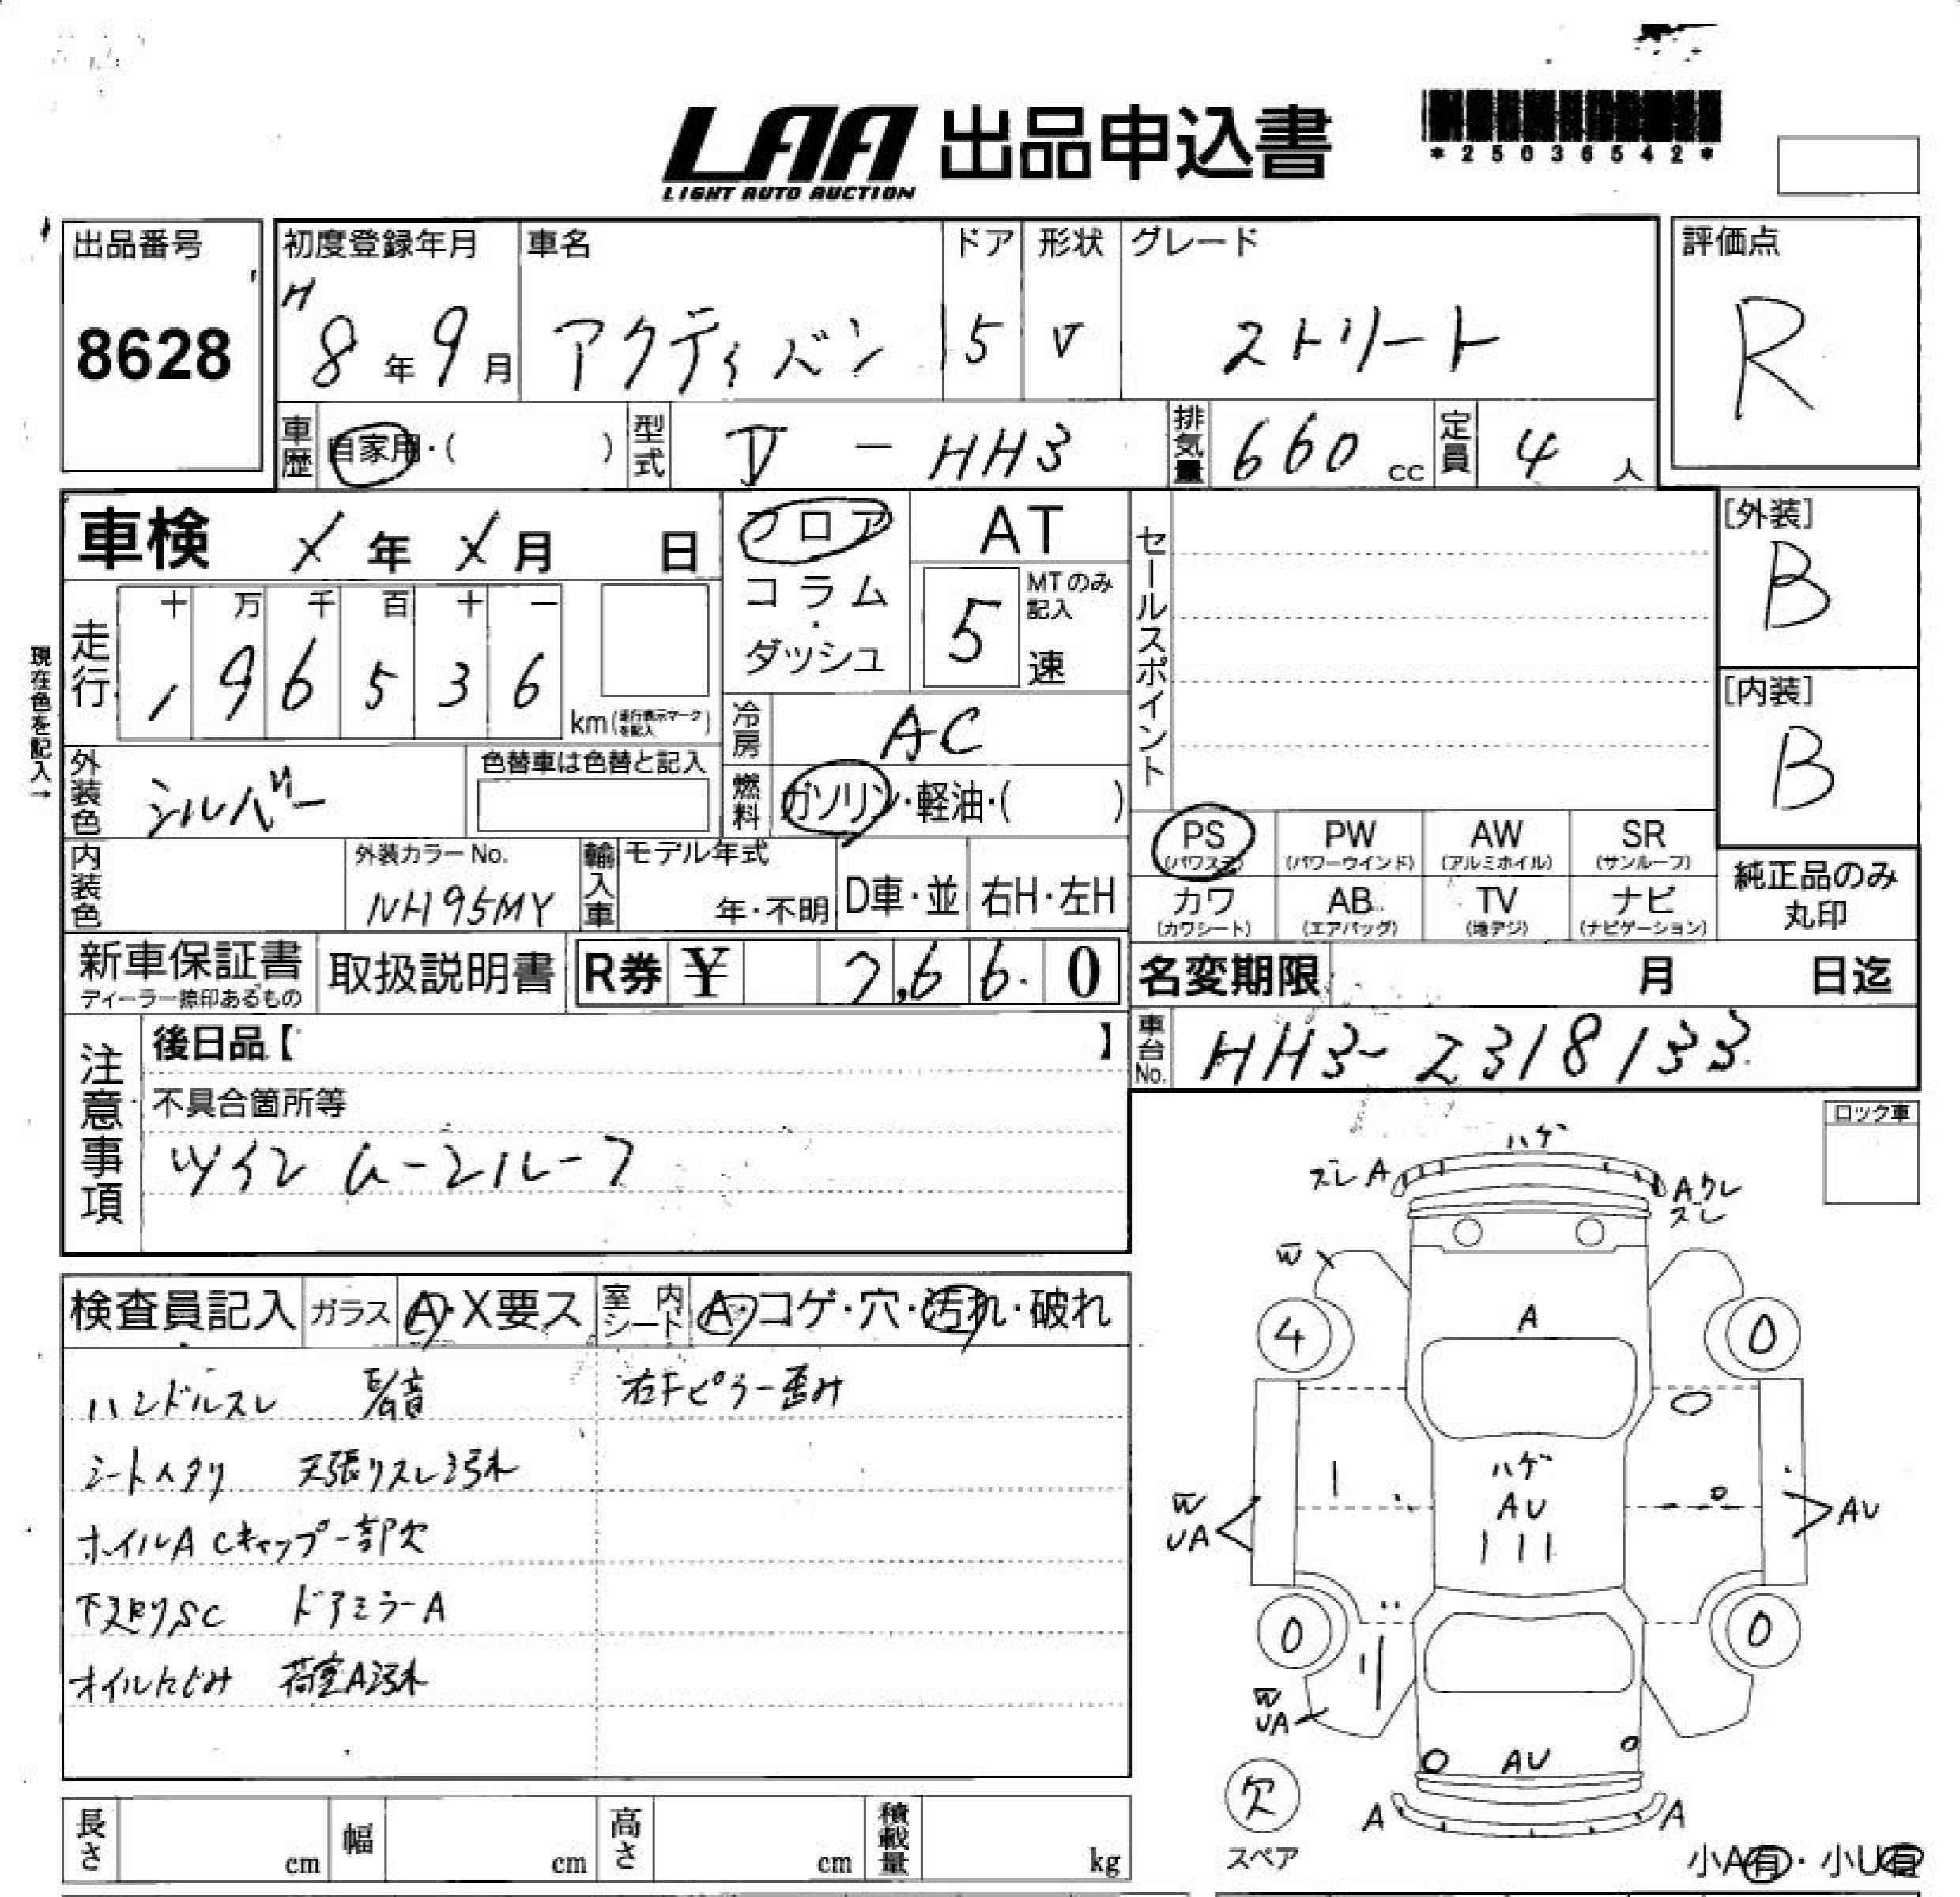 LAA 出品申込書
LIGHT AUTO AUCTION
*25036542*
出品番号
8628
初度登録年月
H8年9月
車名
アクティバン
ドア
5
形状
V
グレード
ストリート
評価点
R
車歴
自家用・( )
型式
V - HH3
排気量
660cc
定員
4人
車検 X年X月 日
現在色を記入→
走行
十 万 千 百 十 一
1 9 6 5 3 6
km(走行表示マークを記入)
フロア
コラム・
ダッシュ
AT
MTのみ記入
5速
冷房
AC
燃料
ガソリン・軽油・( )
セールスポイント
[外装]
B
[内装]
B
外装色
シルバー
色替車は色替と記入
内装色
外装カラーNo.
NH95MY
輸入車
モデル年式
年・不明
D車・並
右H・左H
PS
(パワステ)
PW
(パワーウインド)
AW
(アルミホイル)
SR
(サンルーフ)
カワ
(カワシート)
AB
(エアバッグ)
TV
(地デジ)
ナビ
(ナビゲーション)
純正品のみ
丸印
新車保証書
ディーラー捺印あるもの
取扱説明書
R券 ¥ 7,660
名変期限 月 日迄
車台No.
HH3-2318133
注意事項
後日品【 】
不具合箇所等
ツインムーンルーフ
ロック車
検査員記入
ガラス
A・X要ス
室内シート
A・コゲ・穴・汚れ・破れ
ハンドルスレ
右Fピラー歪み
シートヘタリ 天張りスレ汚れ
ホイルA Cキャップ一部欠
下廻りSC ドアミラーA
オイルにじみ 荷室A汚れ
ハゲ
スレ A
Aワレ
スレ
W
A
4
0
ハゲ
AU
W
UA
AU
0
0
W
UA
AU
欠
スペア
A
A
小A有・小U有
長さ cm
幅 cm
高さ cm
積載量 kg